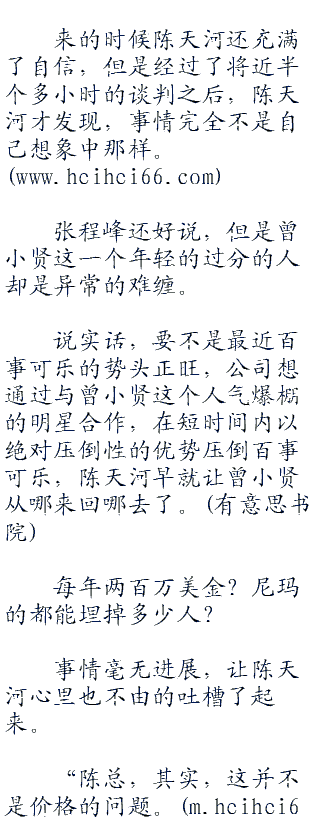 来的时候陈天河还充满
了自信，但是经过了将近半
个多小时的谈判之后，陈天
河才发现，事情完全不是自
己想象中那样。
(www.hcihci66.com)
张程峰还好说，但是曾
小贤这一个年轻的过分的人
却是异常的难缠。
说实话，要不是最近百
事可乐的势头正旺，公司想
通过与曾小贤这个人气爆棚
的明星合作，在短时间内以
绝对压倒性的优势压倒百事
可乐，陈天河早就让曾小贤
从哪来回哪去了。(有意思书
院)
每年两百万美金？尼玛
的都能埋掉多少人？
事情毫无进展，让陈天
河心里也不由的吐槽了起
来。
“陈总，其实，这并不
是价格的问题。(m.hcihci6